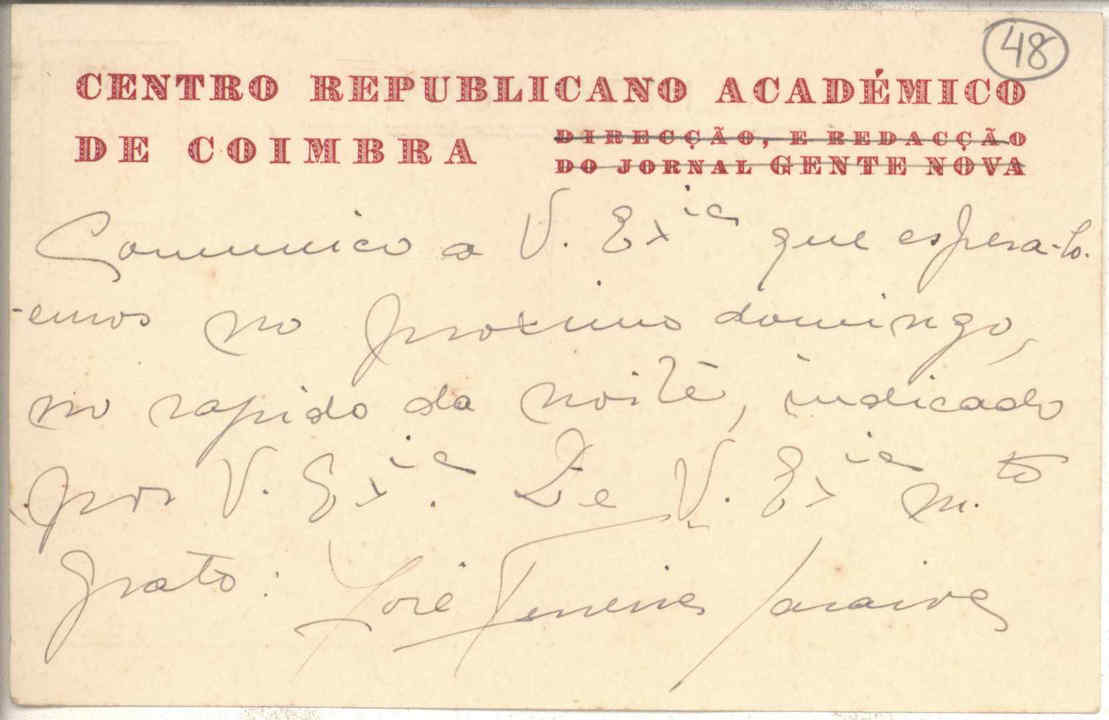 48
CENTRO REPUBLICANO ACADÉMICO
DE COIMBRA
DIRECÇÃO, E REDACÇÃO
DO JORNAL GENTE NOVA
Comunico a V. Exia que espera-lo-
-emos no proximo domingo,
no rapido da noite, indicado
por V. Exia. De V. Exia m.to
grato: José Ferreira Saraiva